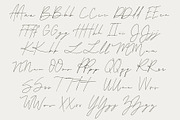 AAaa BBbb CCcc DDdd EEee
FFff GGgg HHhh IIii JJjj
KKkk LLll MMmm
NNnn OOoo PPpp QQqq RRrr
SSss TTtt UUuu VVvv
WWww XXxx YYyy ZZzz